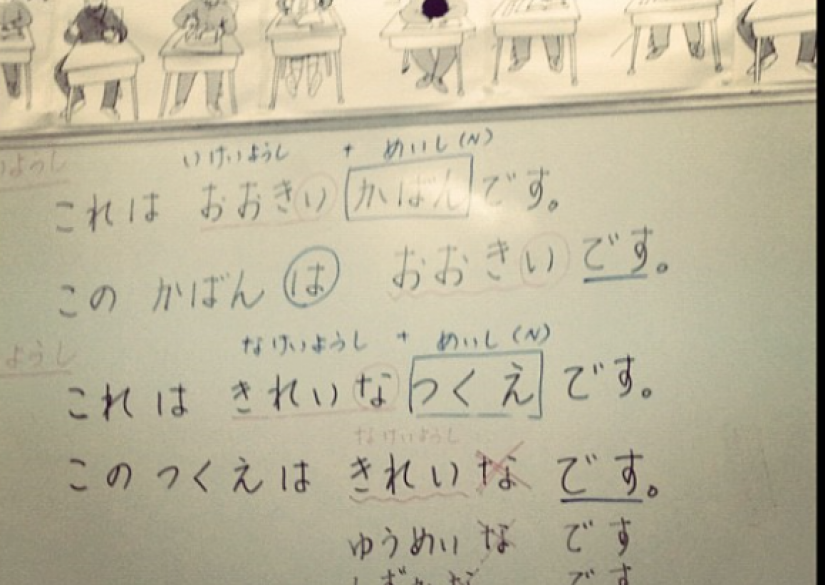 いけいようし + めいし(N)
これは おおきい かばん です。
この かばん は おおきい です。
なけいようし + めいし(N)
ようし
これは きれいな つくえ です。
なけいようし
このつくえは きれいな です。
ゆうめいな です
です